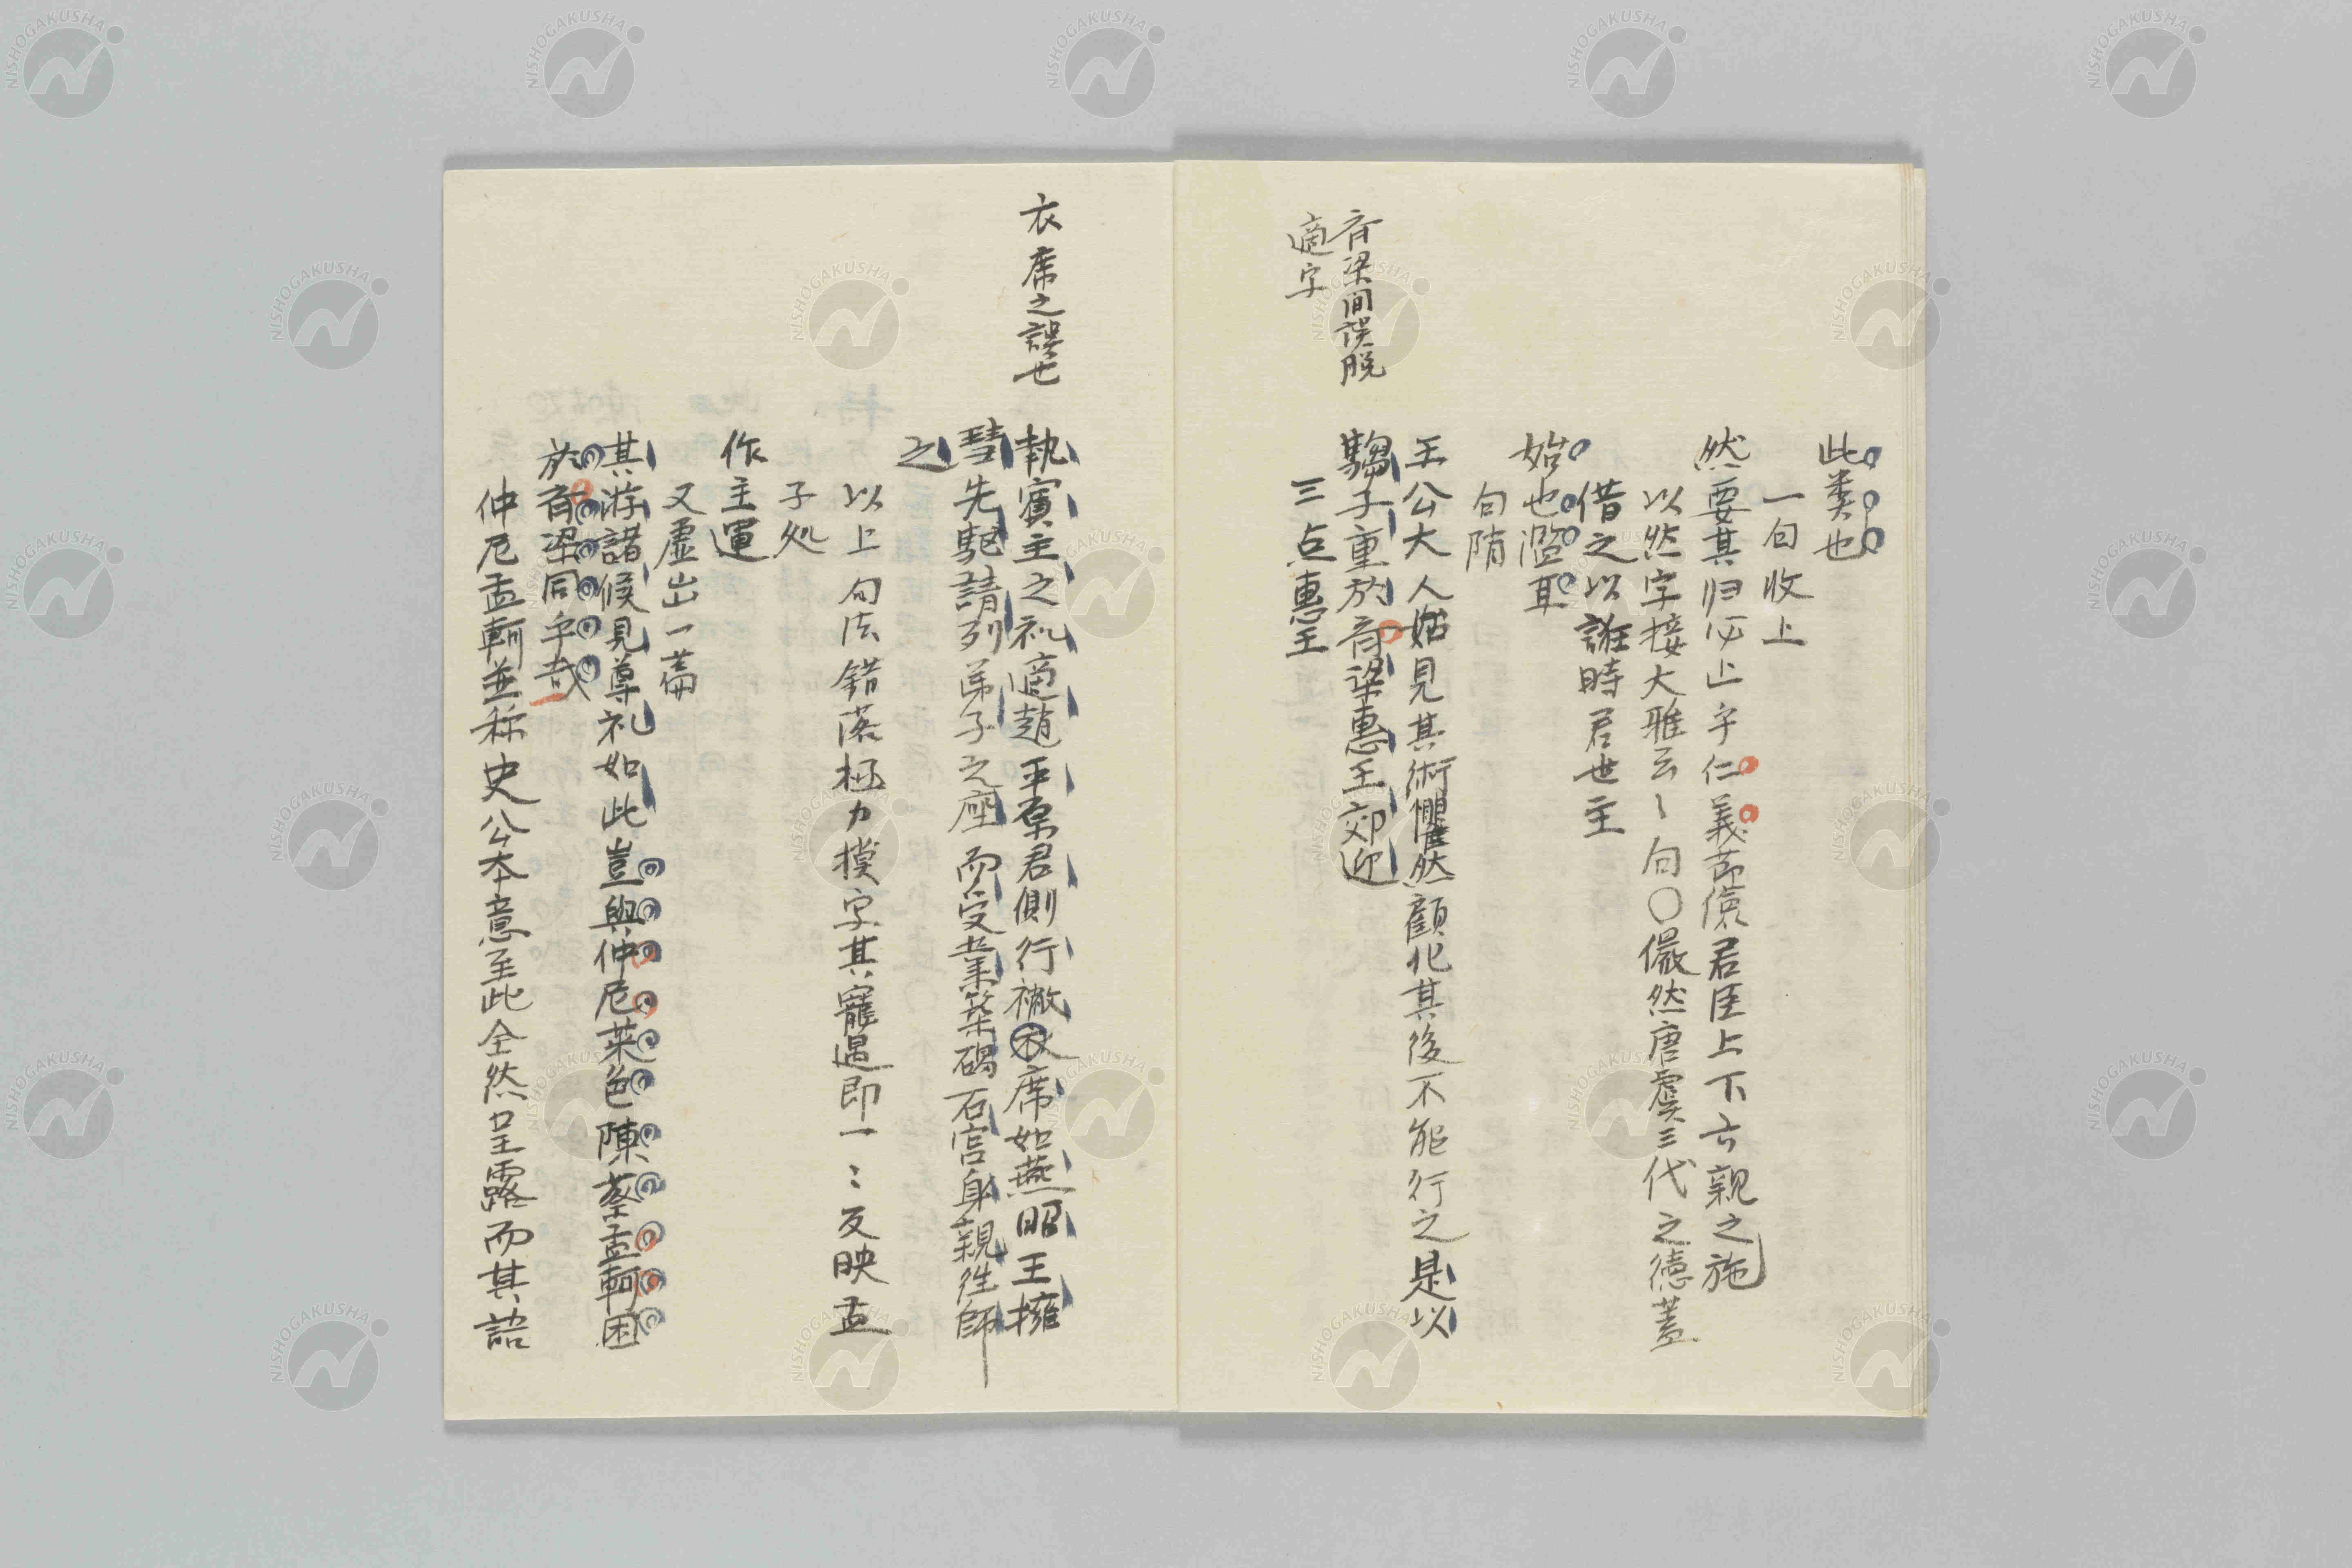 此类也
一句收上
然要其归必止乎仁義茆儉君臣上下六親之施
以然字接大雅云〻句〇儼然唐虞三代之德蓋
借之以誑時君世主
始也濫耳
句陗
王公大人始見其術懼然顧化其後不能行之是以
騶子重於斉梁惠王郊迎
三点惠王
斉梁间誤脱
適字
執賓主之礼適趙平原君側行襒衣席如燕昭王擁
彗先駆請列弟子之座而受業築碣石宮身親往師
之
以上句法錯落極力摸写其寵遇即一〻反映孟
子処
作主運
又虚出一篇
其游諸侯見尊礼如此豈與仲尼菜色陳蔡孟軻困
於斉梁同乎哉
仲尼孟軻並称史公本意至此全然呈露而其詰
衣席之誤也
NISHOGAKUSHA